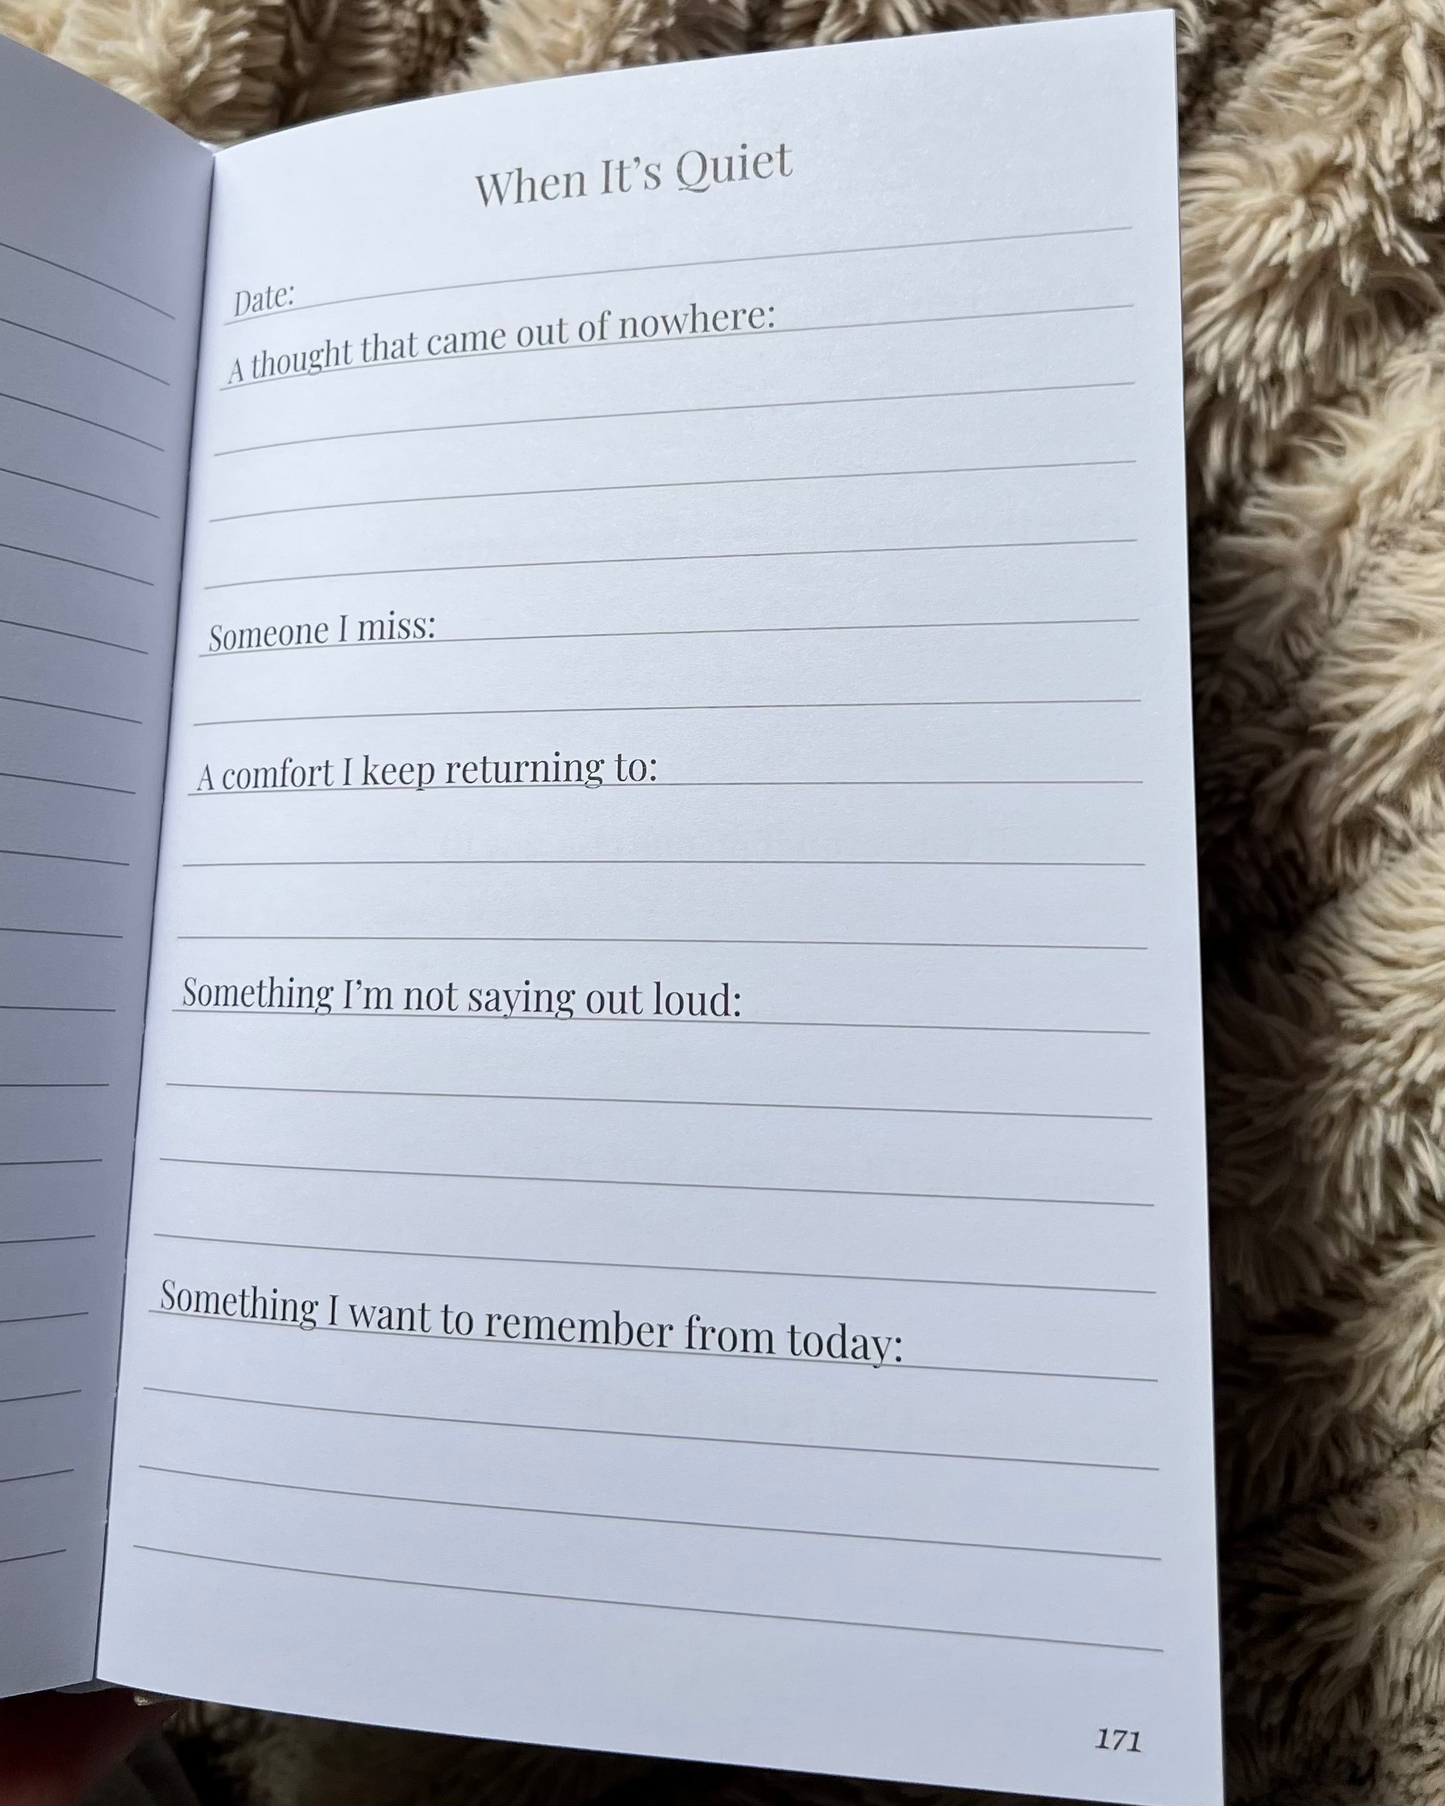 When It's Quiet
Date:
A thought that came out of nowhere:
Someone I miss:
A comfort I keep returning to:
Something I'm not saying out loud:
Something I want to remember from today:
171